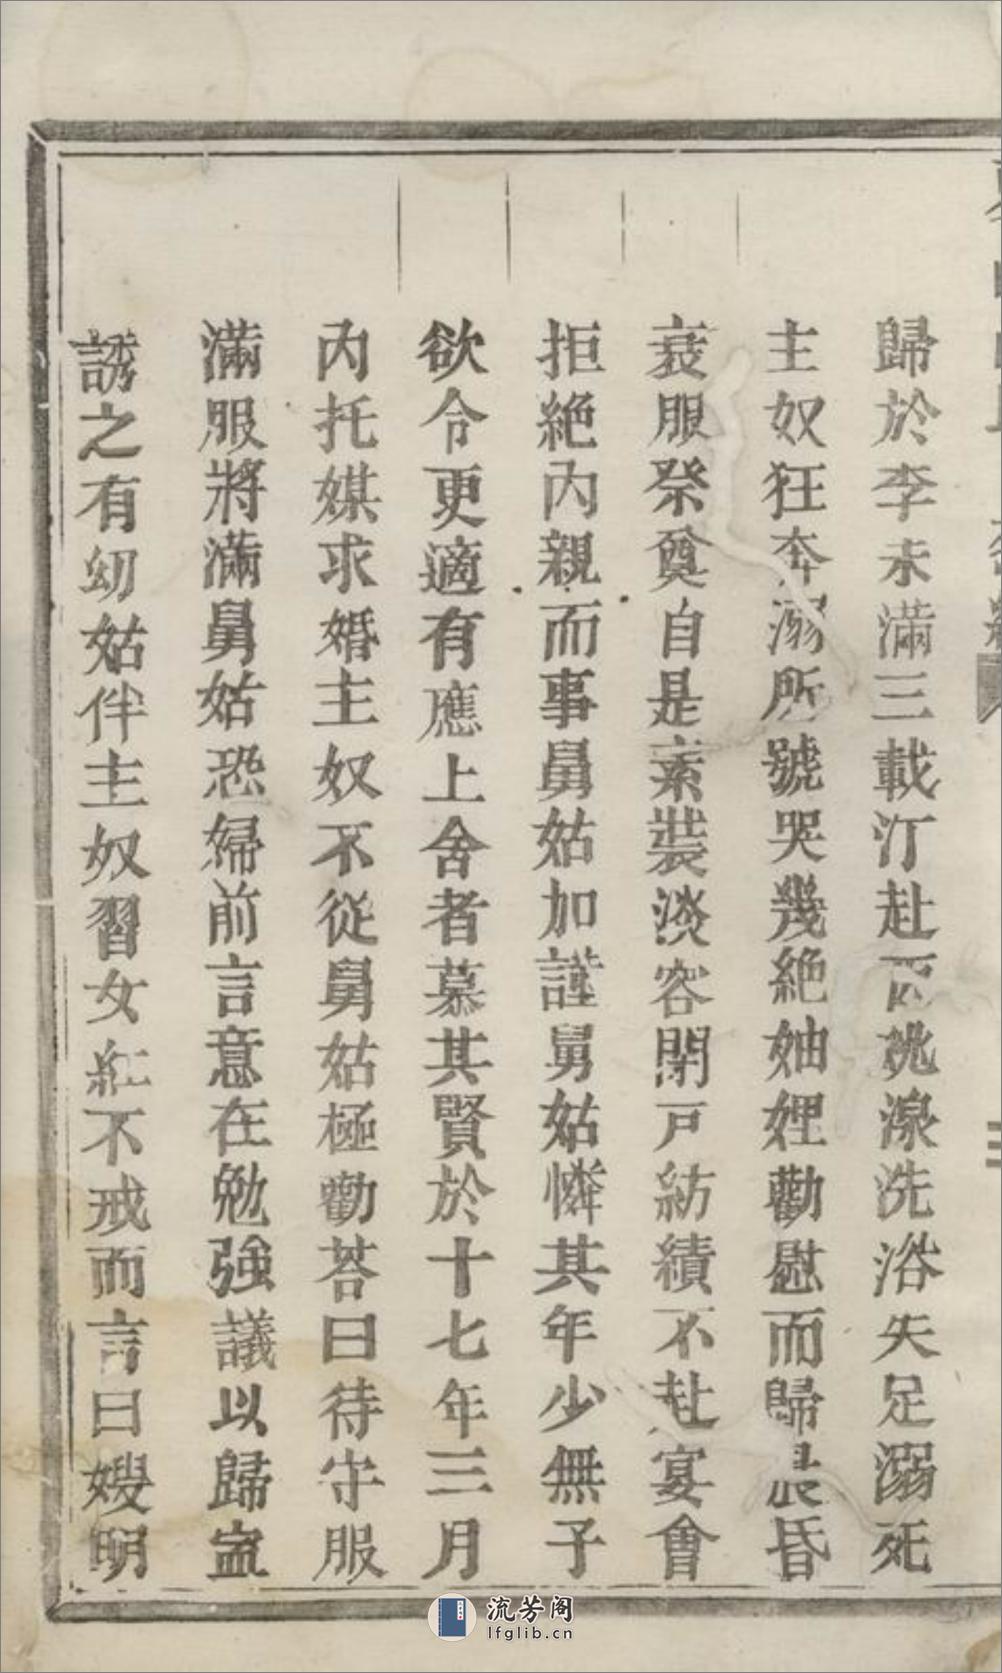 歸於李未滿三載汀赴西桃湶洗浴失足溺死
主奴狂奔溺所號哭幾絕妯娌勸慰而歸晨昏
衰服祭奠自是素裝淡容閉戸紡績不赴宴會
拒絕內親而事舅姑加謹舅姑憐其年少無子
欲令更適有應上舍者慕其賢於十七年三月
內托媒求婚主奴不從舅姑極勸荅曰待守服
滿服將滿舅姑恐婦前言意在勉強議以歸寍
誘之有幼姑伴主奴習女紅不戒而言曰嫂明
流芳阁
lfglib.cn